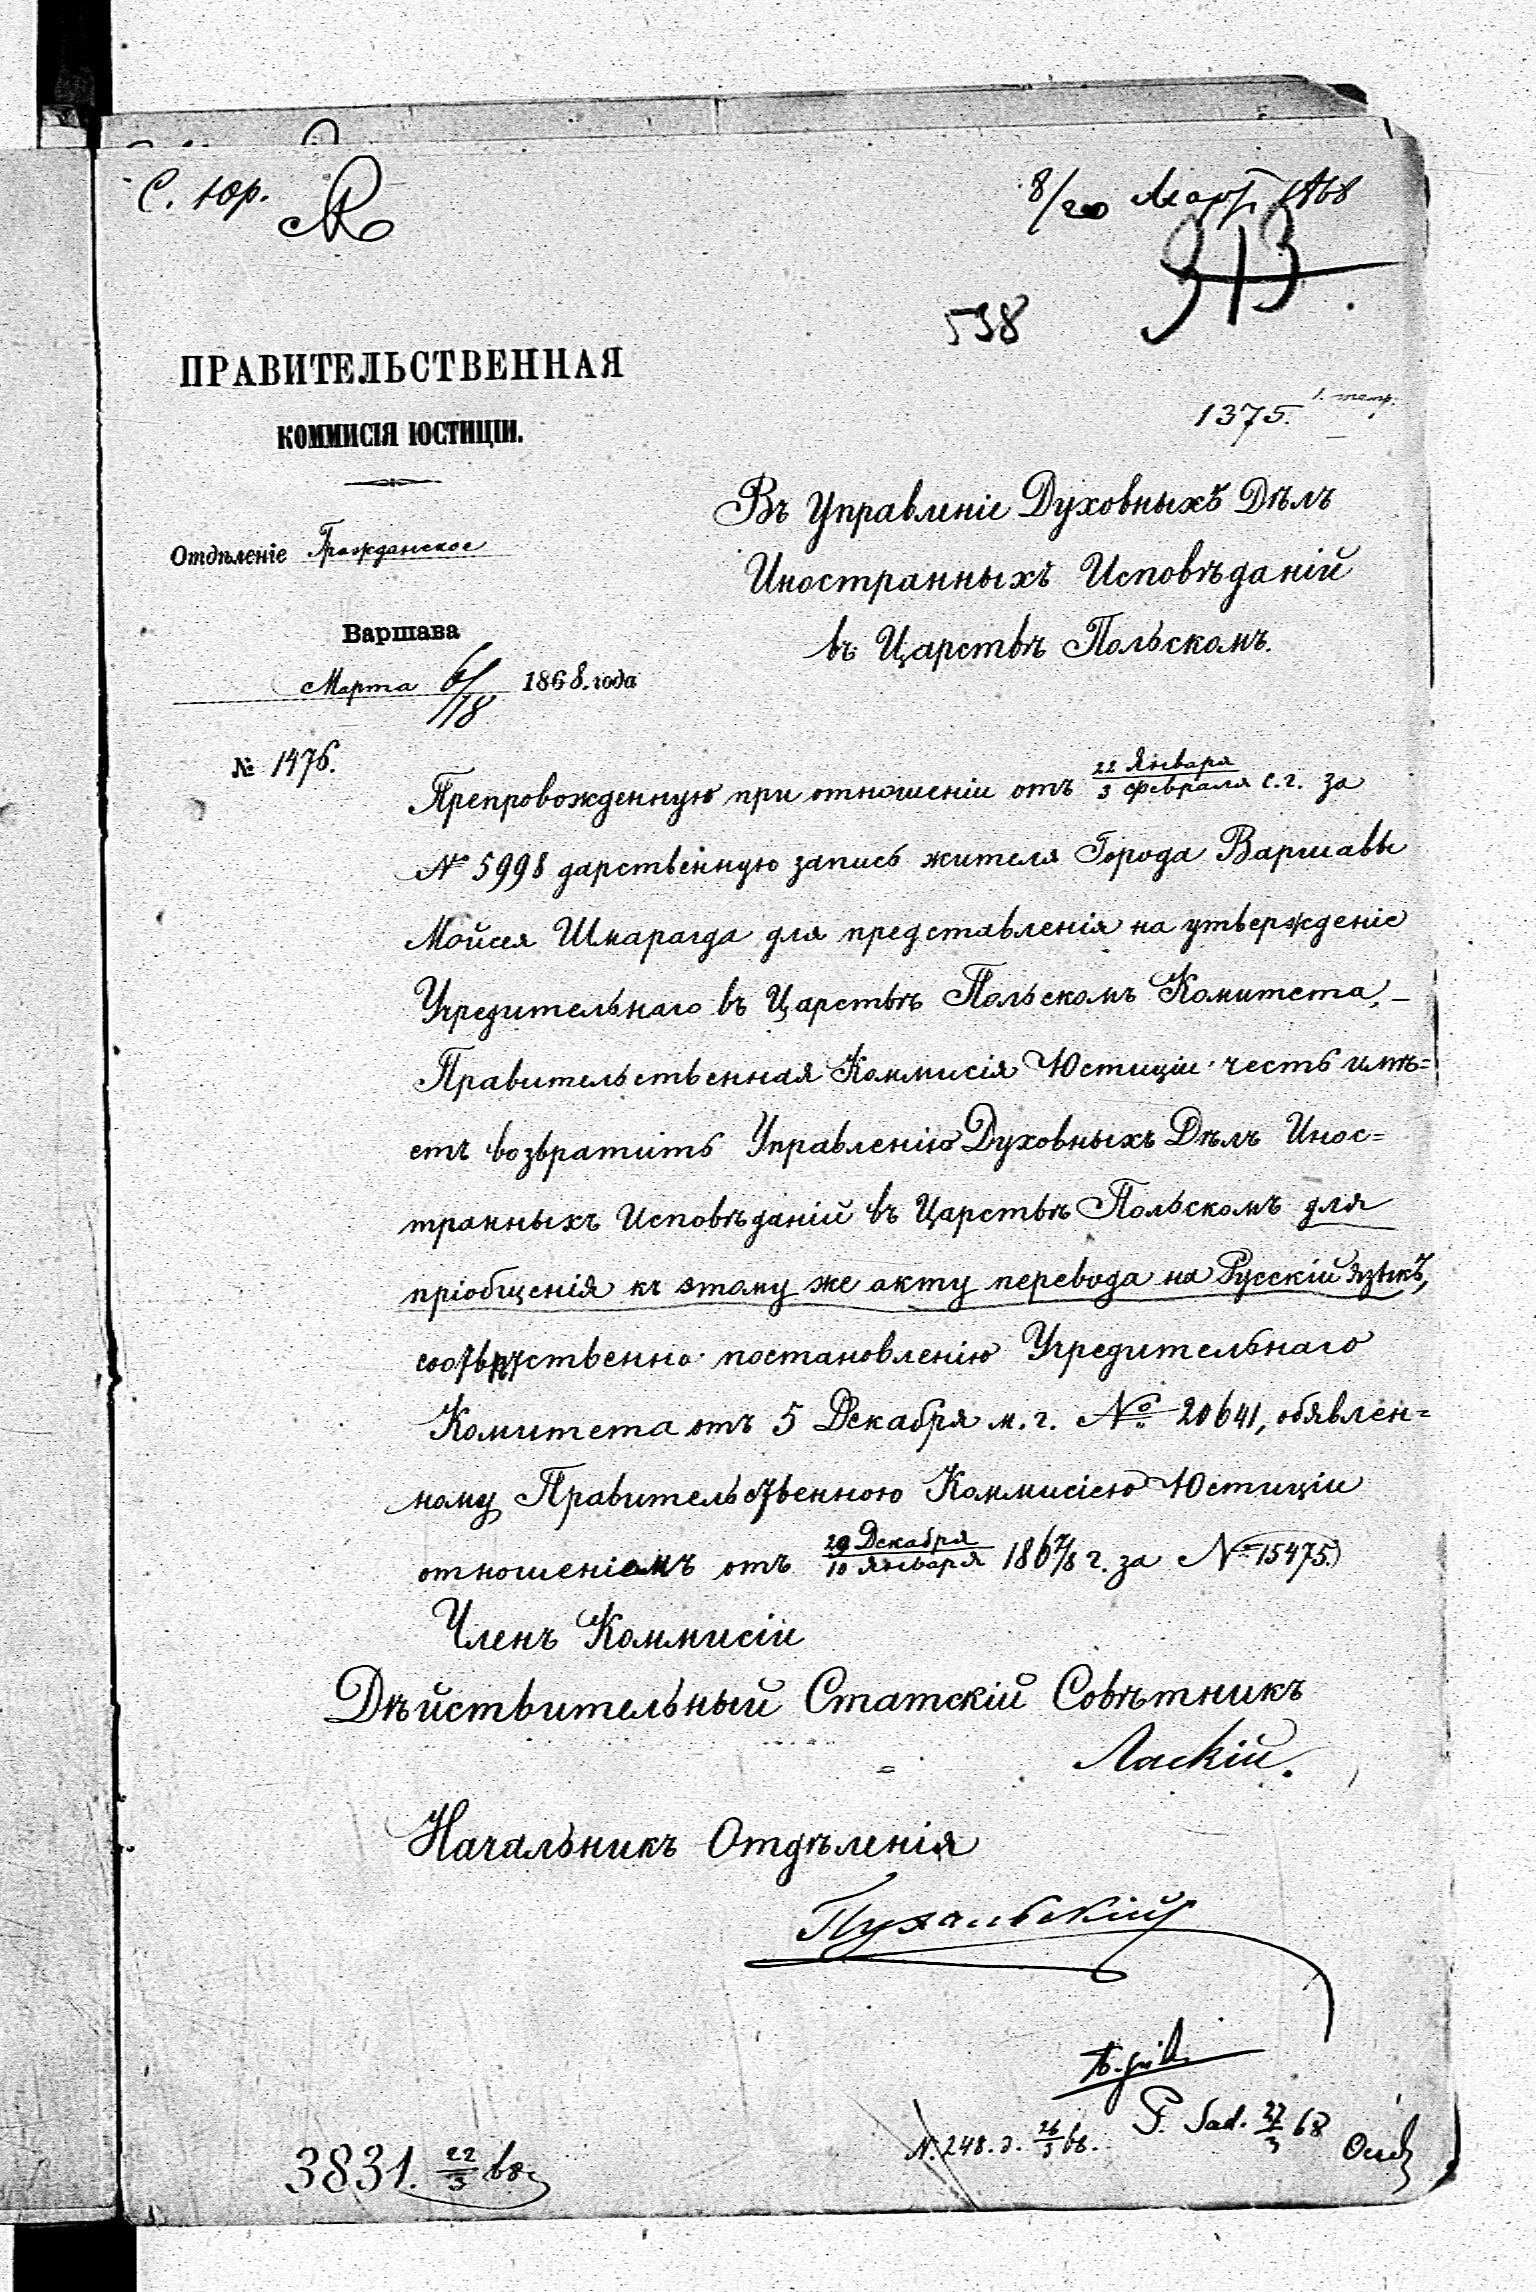 С. Юр.
8/20 Март 1868
913
538
ПРАВИТЕЛЬСТВЕННАЯ
КОММИСІЯ ЮСТИЦІИ.
1375.
Отдѣленіе Гражданское
Варшава
Марта 6/18 1868. года
№ 1476.
Въ Управленіе Духовныхъ Дѣлъ
Иностранныхъ Исповѣданій
въ Царствѣ Польскомъ.
Препровожденную при отношеніи отъ 22 Января/3 Февраля с.г. за
№ 5998 дарственную запись жителя Города Варшавы
Мойсея Шмарагда для представленія на утвержденіе
Учредительнаго въ Царствѣ Польскомъ Комитета, —
Правительственная Коммисія Юстиціи честь имѣ=
етъ возвратить Управленію Духовныхъ Дѣлъ Инос=
транныхъ Исповѣданій въ Царствѣ Польскомъ для
пріобщенія къ этому же акту перевода на Русскій языкъ,
соотвѣтственно постановленію Учредительнаго
Комитета отъ 5 Декабря м.г. № 20641, обявлен=
ному Правительственною Коммисіею Юстиціи
отношеніемъ отъ 29 Декабря/10 Января 1867/8 г. за № 15475.
Членъ Коммисіи
Дѣйствительный Статскій Совѣтникъ
Ласкій.
Начальникъ Отдѣленія
Пухальскій
P. Sad. 27/3 68
N. 248. д. 26/3 68.
3831. 22/3 68